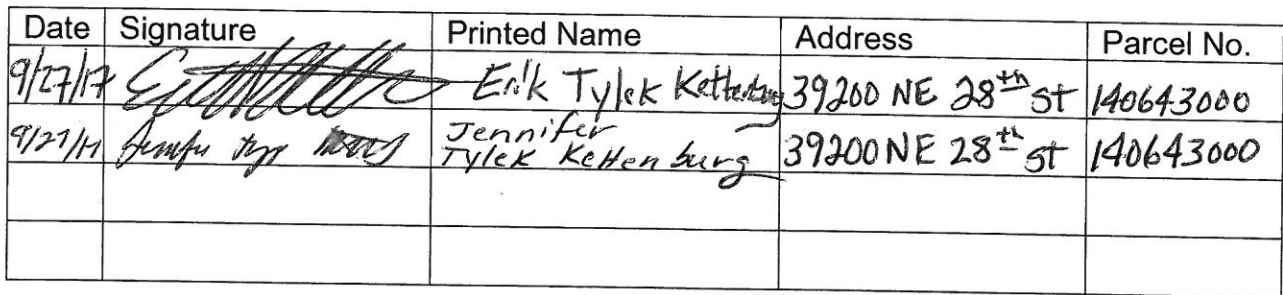 Date Signature Printed Name Address Parcel No.
9/27/17 Erik Tylek Kettenburg 39200 NE 28th St 140643000
9/27/17 Jennifer
Tylek Kettenburg 39200 NE 28th St 140643000